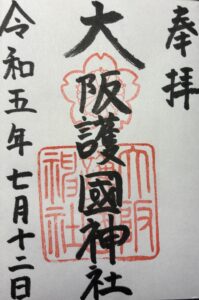 奉拝
大阪護國神社
令和五年七月十二日